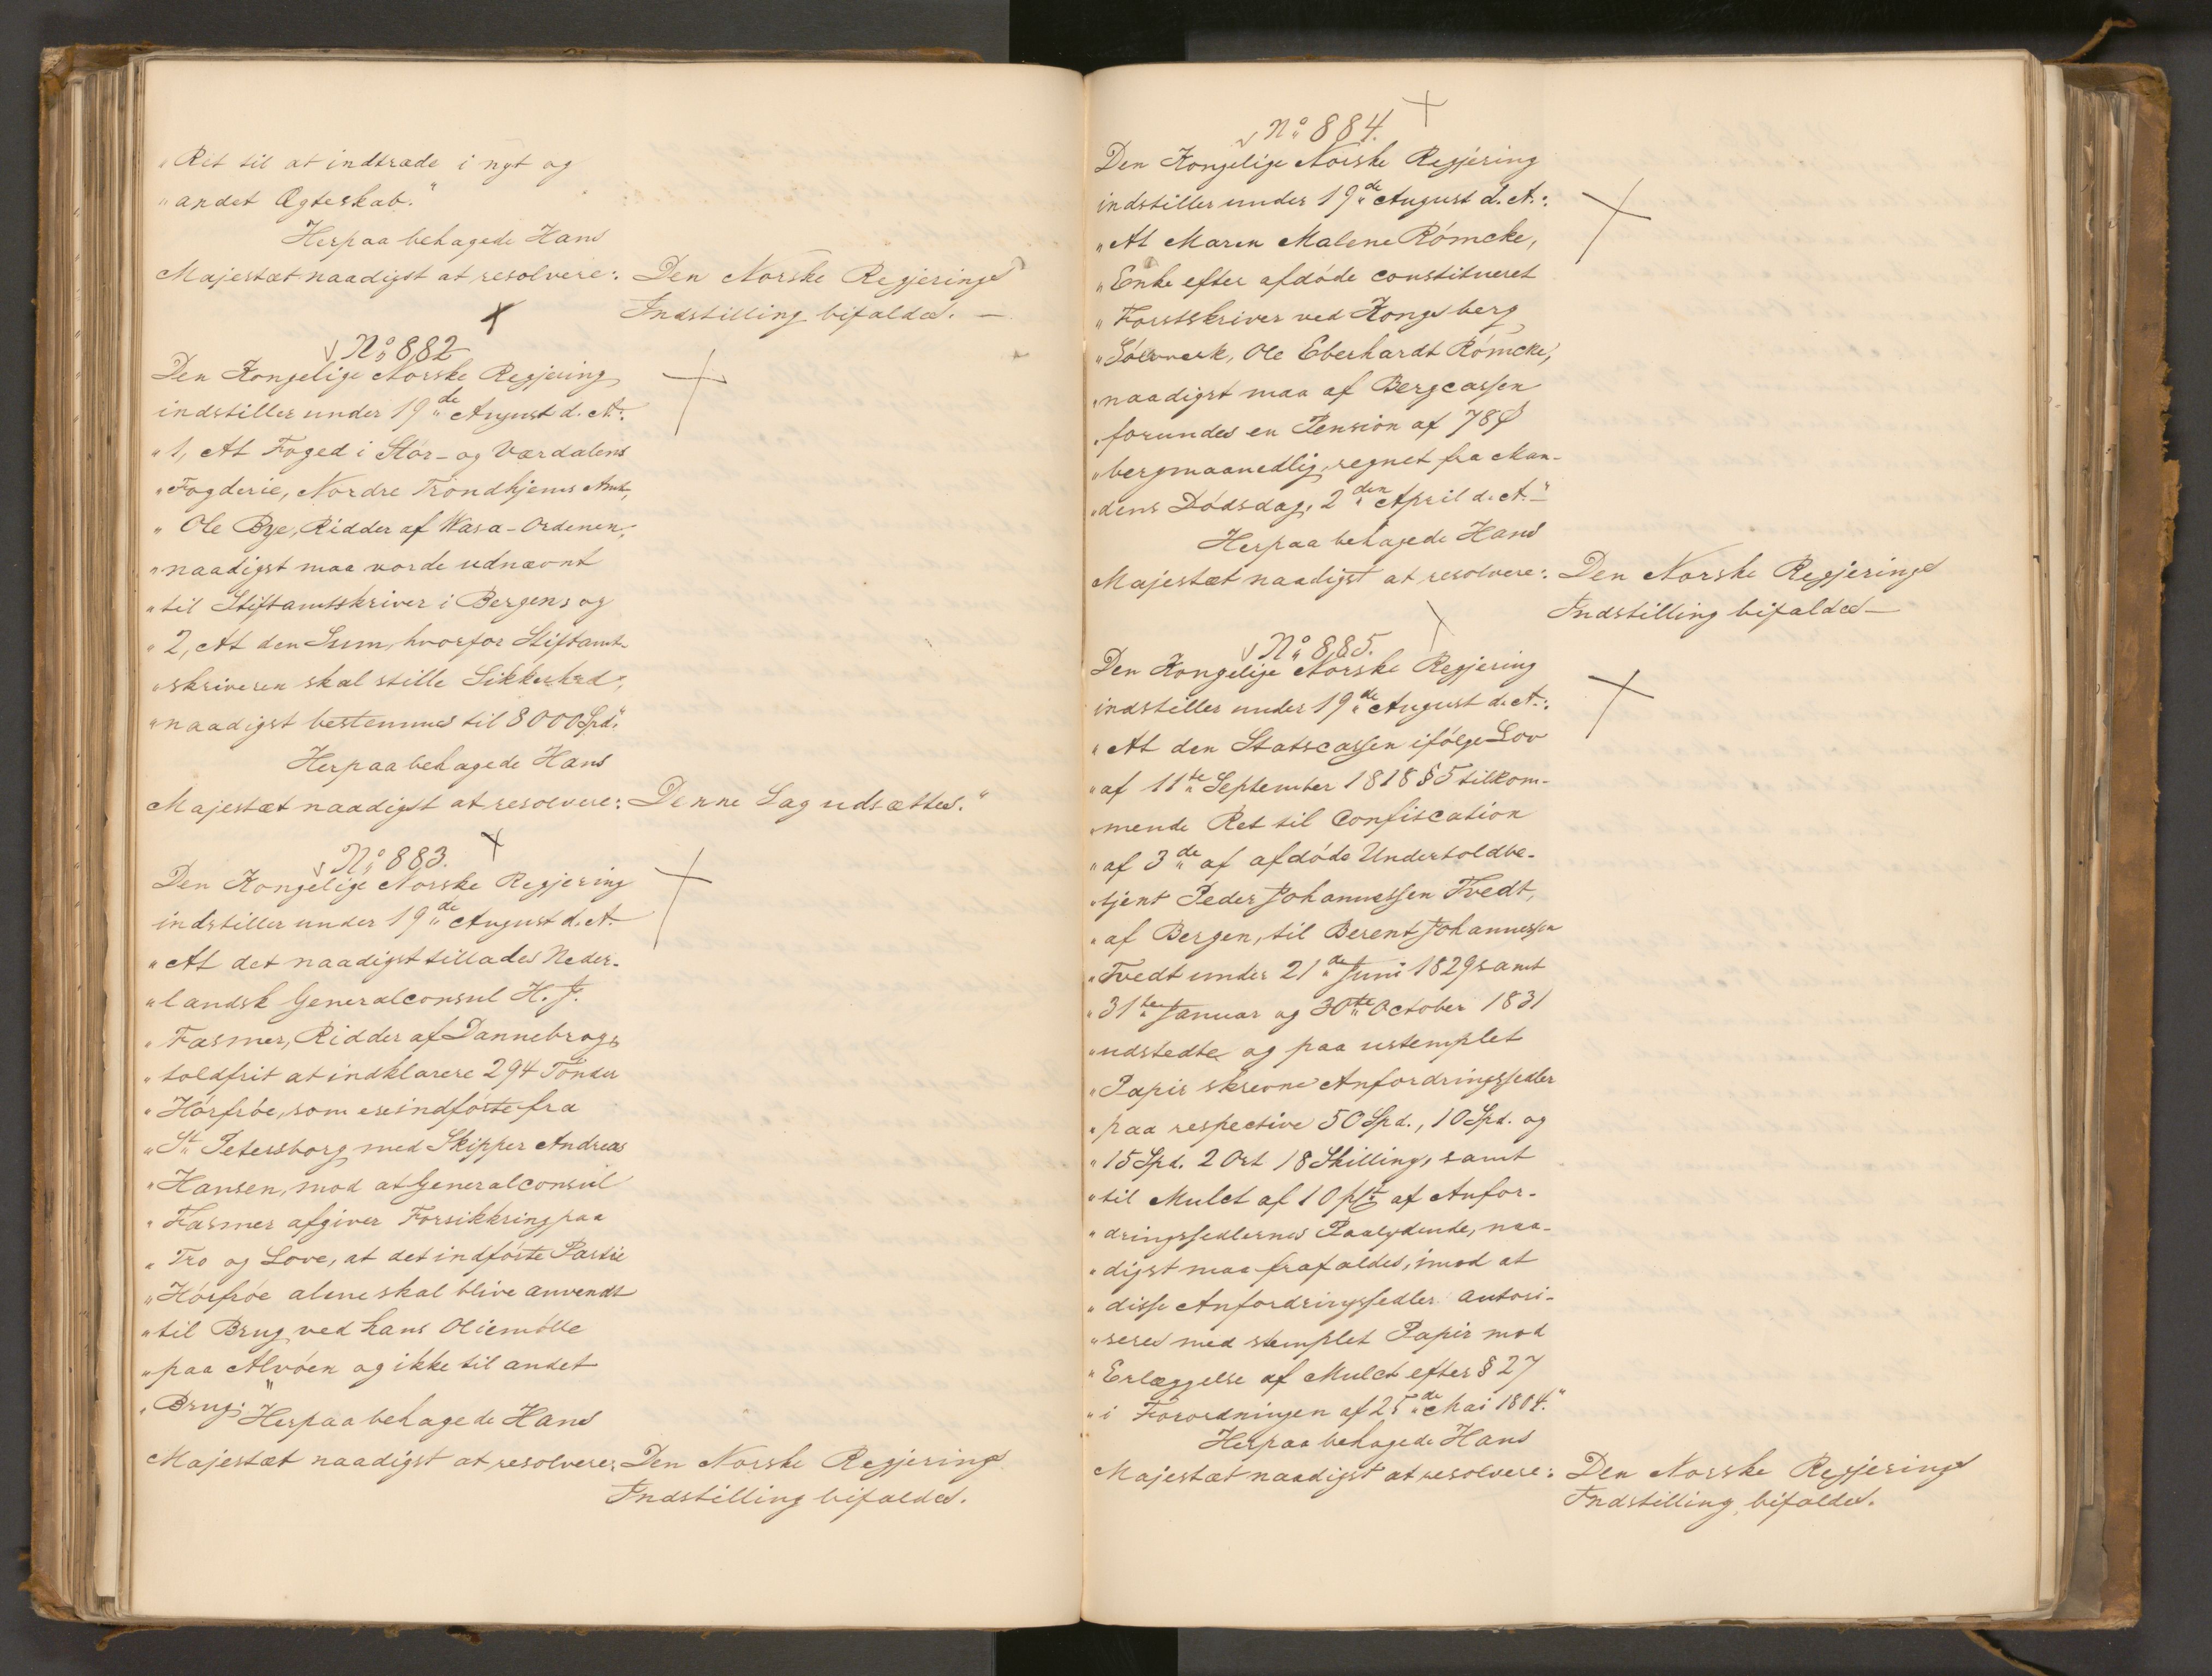 "Ret til at indtræde i nyt og
"andet Ægteskab."
Herpaa behagede Hans
Majestæt naadigst at resolvere: Den Norske Regjerings
Indstilling bifaldes. —
No 882
Den Kongelige Norske Regjering
indstiller under 19de August d. A.:
"1, At Foged i Stør- og Værdalens
"Fogderie, Nordre Trondhjems Amt,
"Ole Bye, Ridder af Wasa-Ordenen,
"naadigst maa vorde udnævnt
"til Stiftamtsskriver i Bergen; og
"2, At den Sum, hvorfor Stiftamt-
"skriveren skal stille Sikkerhed,
"naadigst bestemmes til 8000 Spd."
Herpaa behagede Hans
Majestæt naadigst at resolvere: Denne Sag udsættes."
No 883.
Den Kongelige Norske Regjering
indstiller under 19de August d. A.
"At det naadigst tillades Neder-
"landsk Generalconsul H. J.
"Fasmer, Ridder af Dannebrog,
"toldfrit at indklarere 294 Tønder
"Hørfrøe, som ere indførte fra
"St Petersborg med Skipper Andreas
"Hansen, mod at Generalconsul
"Fasmer afgiver Forsikkring paa
"Tro og Love, at det indførte Partie
"Hørfrøe alene skal blive anvendt
"til Brug ved hans Oliemølle
"paa Alvøen og ikke til andet
"Brug."
Herpaa behagede Hans
Majestæt naadigst at resolvere: Den Norske Regjerings
Indstilling bifaldes.
No 884.
Den Kongelige Norske Regjering
indstiller under 19de August d. A.:
"At Maren Malene Rómcke,
"Enke efter afdøde constitueret
"Forstskriver ved Kongsberg
"Sølvværk, Ole Eberhardt Rómcke,
"naadigst maa af Bergcassen
"forundes en Pension af 78 ß
"bergmaanedlig, regnet fra Man-
"dens Dødsdag, 2den April d. A." —
Herpaa behagede Hans
Majestæt naadigst at resolvere: Den Norske Regjerings
Indstilling bifaldes —
No 885.
Den Kongelige Norske Regjering
indstiller under 19de August d. A.:
"At den Statscassen ifølge Lov
"af 11te September 1818 § 5 tilkom-
"mende Ret til Confiscation
"af 3de af afdøde Undertoldbe-
"tjent Peder Johannessen Tvedt,
"af Bergen, til Berent Johannessen
"Tvedt under 21de Juni 1829 samt
"31te Januar og 30te October 1831
"udstedte og paa ustemplet
"Papir skrevne Anfordringssedler
"paa respective 50 Spd., 10 Spd. og
"15 Spd. 2 Ort 18 Skilling, samt
"til Mulct af 10 pCt af Anfor-
"dringssedlernes Paalydende, naa-
"digst maa frafaldes, imod at
"disse Anfordringssedler autori-
"seres med stemplet Papir mod
"Erlæggelse af Mulct efter § 27
"i Forordningen af 25de Mai 1804."
Herpaa behagede Hans
Majestæt naadigst at resolvere: Den Norske Regjerings
Indstilling bifaldes.